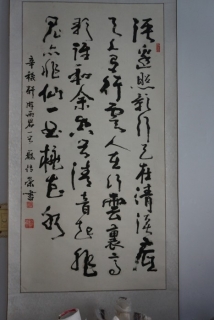 溪邊照影行天在清溪底
天上有行雲人在行雲裏高
歌誰和余空谷清音起非
鬼亦非仙一曲桃花水
辛稼軒游雨岩一首 書